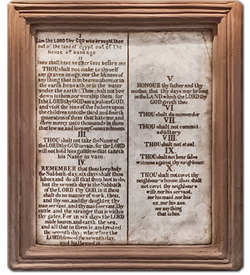 I am the LORD thy GOD who brought thee
out of the land of Egypt out of the
house of bondage
Thou shalt have no other Gods before me
THOU shalt not make to thyself
any graven image, nor the likness of
any thing that is in heaven above or in
the earth beneath, or in the water
under the earth. Thou shalt not bow
down to them, nor worship them: for
I the LORD thy GOD am a jealous GOD,
and visit the sins of the fathers upon
the children unto the third and fourth
generation of them that hate me and
shew mercy unto thousands in them
that love me and keep my commandments
III
THOU shalt not take the Name of
the LORD thy GOD in vain: for the LORD
will not hold him guiltless that taketh
his Name in vain.
IV
REMEMBER that thou keep holy
the Sabbath day, six days shalt thou
labour and do all that thou hast to do,
but the seventh day is the Sabbath
of the LORD thy GOD, in it thou
shalt do no manner of work, thou,
and thy son, and thy daughter, thy
man servant, and thy maid servant, thy
cattle, and the stranger that is within
thy gates. For in six days the LORD
made heaven and earth, the sea,
and all that in them is, and rested
the seventh day, wherefore the
LORD blessed the seventh day
and hallowed it.
V
HONOUR thy father and thy
mother, that thy days may be long
in the LAND which the LORD thy
GOD giveth thee.
VI
THOU shalt do no murder
VII
THOU shalt not commit
adultery.
VIII
THOU shalt not steal.
IX
THOU shalt not bear false
witness against thy neighbour
X
THOU shalt not covet thy
neighbour's house, thou shalt
not covet thy neighbour's
wife, nor his servant,
nor his maid, nor his
ox, nor his ass,
nor any thing
that is his.